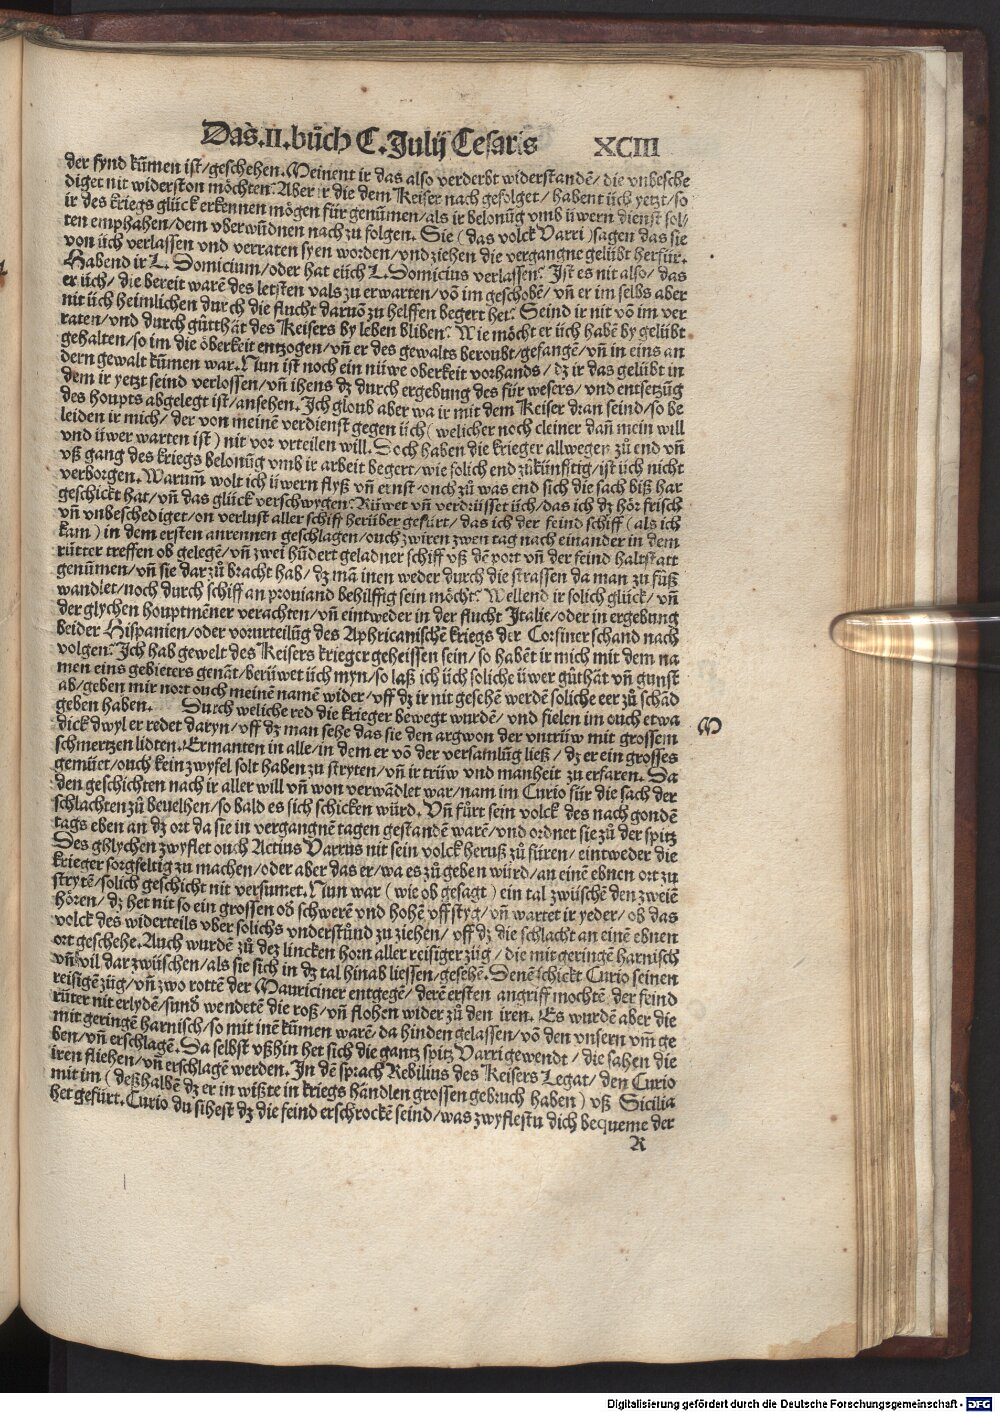 Das .II. bůch C. Julij Cesaris XCIII
der fynd kum̃en ist/geschehen. Meinent ir das also verderbt widerstandẽ/ die vnbesche
diget nit widerston möchten? Aber ir die dem Keiser nach gefolget/ habent üch yetzt/so
ir des kriegs glück erkennen mögen für genũmen/als ir belonũg vmb üwern dienst sol/
ten emphahen/dem vberwũdnen nach zu folgen. Sie (das volck Varri) sagen das sie
von üch verlassen vnd verraten syen worden/vnd ziehen die vergangne gelübt herfür.
Habend ir L. Domicium/oder hat eüch L. Domicius verlassen? Ist es nit also/ das
er üch/ die bereit warẽ des letsten vals zu erwarten/võ im geschobẽ/ vñ er im selbs aber
nit üch heimlichen durch die flucht daruõ zu helffen begert het? Seind ir nit võ im ver
raten/vnd durch gütthät des Keisers by leben bliben? Wie möcht er üch habẽ by gelübt
gehalten/so im die öberkeit entzogen/vñ er des gewalts beroubt/gefangẽ/vñ in eins an
dern gewalt kũmen war. Nun ist noch ein nüwe oberkeit vorhands/ dz ir das gelübt in
dem ir yetzt seind verlossen/vñ ihens dz durch ergebung des für wesers/ vnd entsetzũg
des houpts abgelegt ist/ansehen. Ich gloub aber wa ir mit dem Keiser dran seind/so be
leiden ir mich/ der von meinẽ verdienst gegen üch (welicher noch cleiner dañ mein will
vnd üwer warten ist) nit vor vrteilen will. Doch haben die krieger allwegen zů end vñ
vß gang des kriegs belonũg vmb ir arbeit begert/wie solich end zůkünfftig/ist üch nicht
verborgen. Warum̃ wolt ich üwern flyß vñ ernst/ouch zů was end sich die sach biß har
geschickt hat/vñ das glück verschwygen? Rüwet vñ verdrüsset üch/das ich dz hör frisch
vñ vnbeschediget/on verlust aller schiff herüber gefürt/das ich der feind schiff (als ich
kam) in dem ersten anrennen geschlagen/ouch zwiren zwen tag nach einander in dem
rütter treffen ob gelegẽ/vñ zwei hũdert geladner schiff vß dẽ port vñ der feind haltstatt
genũmen/vñ sie dar zů bracht hab/ dz mã inen weder durch die strassen da man zu fůß
wandlet/noch durch schiff an prouiand behilffig sein möcht? Wellend ir solich glück/ vñ
der glychen houptmẽner verachten/vñ eintweder in der flucht Italie/oder in ergebung
beider Hispanien/oder vorurteilũg des Aphricanischẽ kriegs der Corfiner schand nach
volgen? Ich hab gewelt des Keisers krieger geheissen sein/so habẽt ir mich mit dem na
men eins gebieters genãt/berüwet üch myn/so laß ich üch soliche üwer gůthät vñ gunst
ab/geben mir nort ouch meinẽ namẽ wider/vff dz ir nit gesehẽ werdẽ soliche eer zů schãd
geben haben. Durch weliche red die krieger bewegt wurdẽ/ vnd fielen im ouch etwa
dick dwyl er redet daryn/vff dz man sehe das sie den argwon der vntrüw mit grossem
schmertzen lidten. Ermanten in alle/in dem er võ der versamlũg ließ/ dz er ein grosses
gemüet/ouch kein zwyfel solt haben zu stryten/vñ ir trüw vnd manheit zu erfaren. Da
den geschichten nach ir aller will vñ won verwãdlet war/nam im Curio für die sach der
schlachten zů beuelhen/so bald es sich schicken würd. Vñ fůrt sein volck des nach gondẽ
tags eben an dz ort da sie in vergangnẽ tagen gestandẽ warẽ/vnd ordnet sie zů der spitz
Des ghlychen zwyflet ouch Actius Varrus nit sein volck heruß zů füren/ eintweder die
krieger sorgfeltig zu machen/oder aber das er/wa es zů geben würd/an einẽ ebnen ort zu
strytẽ/solich geschicht nit versumet. Nun war (wie ob gesagt) ein tal zwüschẽ den zweiẽ
hören/ dz het nit so ein grossen oð schwerẽ vnd hohẽ vffstyg/vñ wartet ir yeder/ ob das
volck des widerteils vber solichs vnderstůnd zu ziehen/ vff dz die schlacht an einẽ ebnen
ort geschehe. Auch wurdẽ zů dez lincken horn aller reisiger züg/ die mit geringẽ harnisch
vñ vil dar zwüschen/als sie sich in dz tal hinab liessen/gesehẽ. Denẽ schickt Curio seinen
reisigẽ züg/vñ zwo rottẽ der Mauriciner entgegẽ/ derẽ ersten angriff mochtẽ der feind
rüter nit erlydẽ/sunð wendetẽ die roß/vñ flohen wider zů den iren. Es wurdẽ aber die
mit geringẽ harnisch/so mit inẽ kũmen warẽ/ da hinden gelassen/võ den vnsern vm̃ ge
ben/vñ erschlagẽ. Da selbst vßhin het sich die gantz spitz Varri gewendt/ die sahen die
iren fliehen/vñ erschlagẽ werden. In dẽ sprach Rebilius des Keisers Legat/ den Curio
mit im (deßhalbẽ dz er in wißte in kriegs händlen grossen gebruch haben) vß Sicilia
het gefürt. Curio du sihest dz die feind erschrockẽ seind/was zwyflestu dich bequeme der
M
R
Digitalisierung gefördert durch die Deutsche Forschungsgemeinschaft - DFG